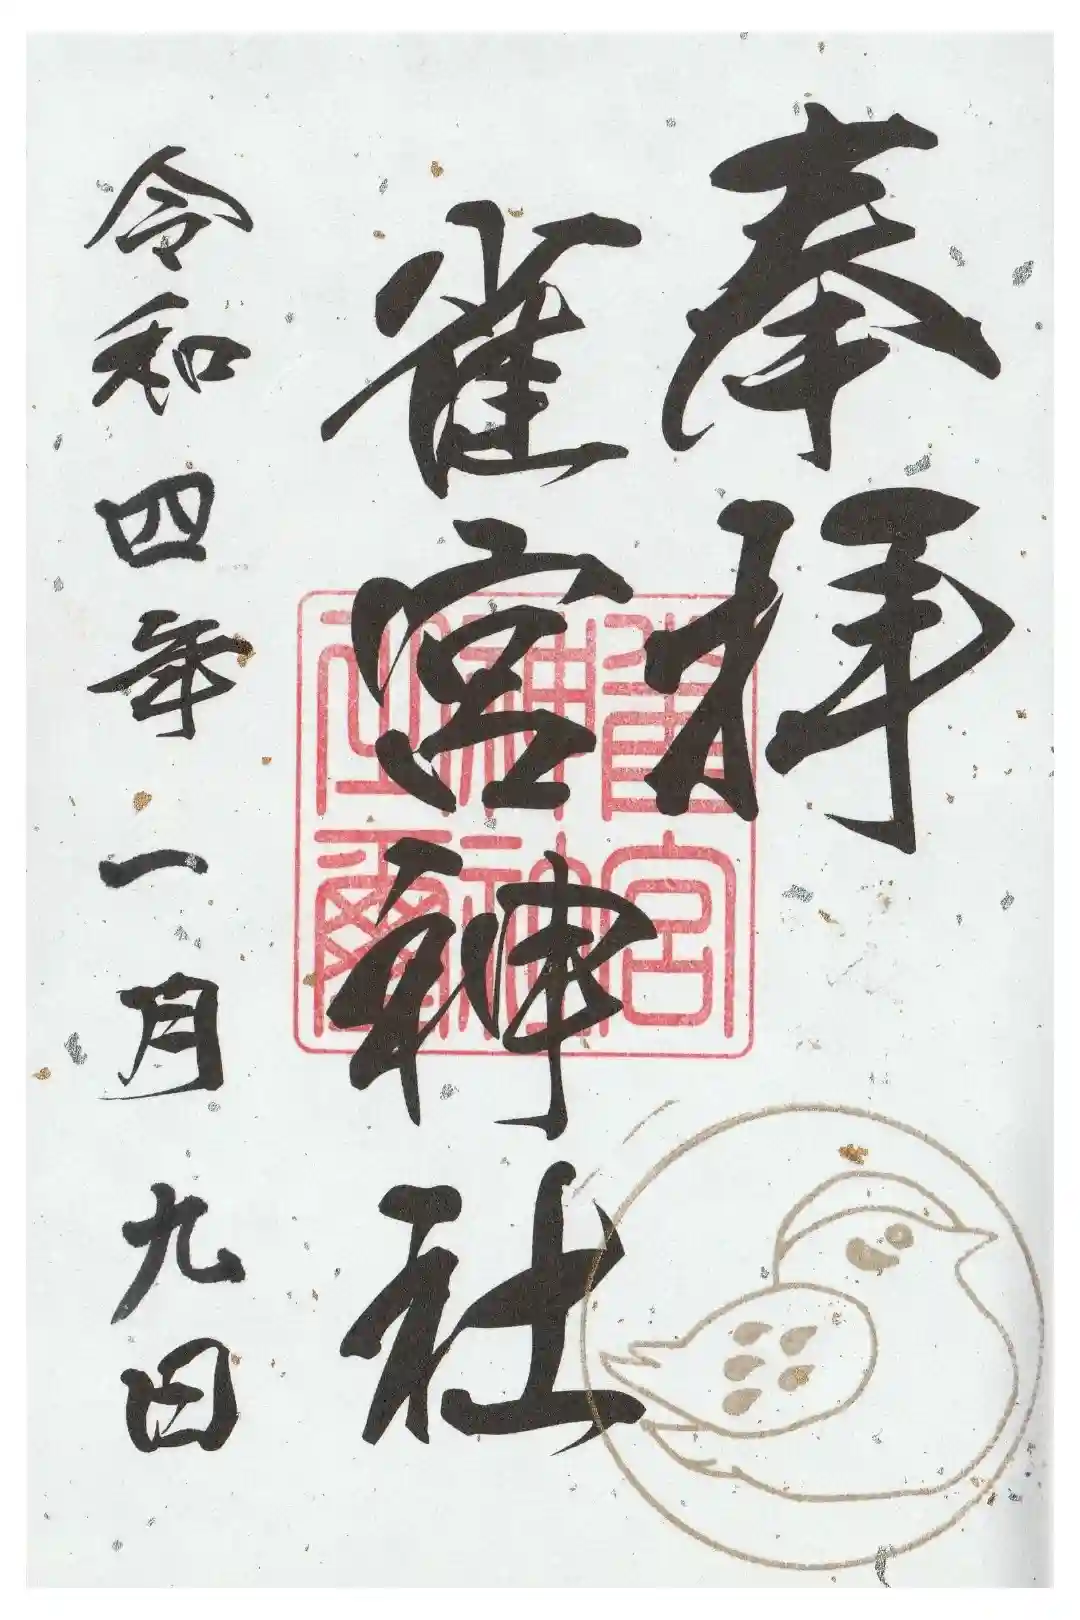 奉拝
雀宮神社
雀宮神社之璽
令和四年一月九日